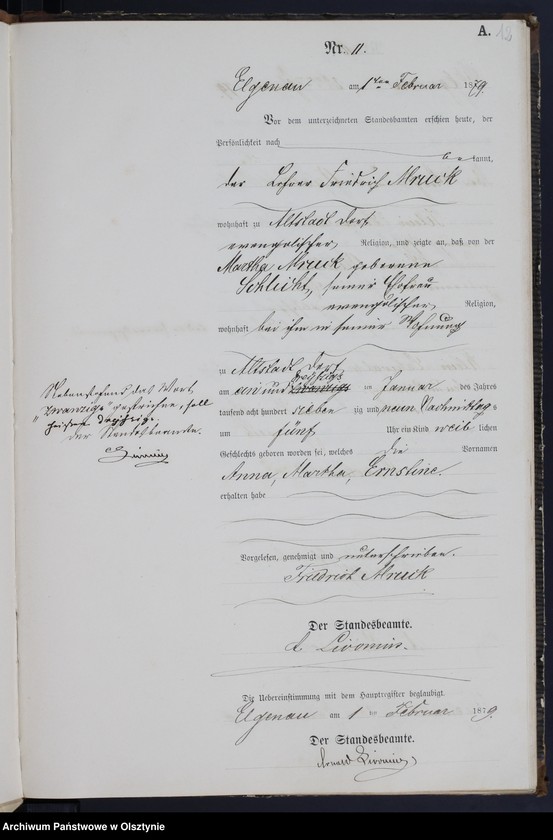 A. 18
Nr. 11.
Elgenau am 1ten Februar 1879.
Vor dem unterzeichneten Standesbeamten erschien heute, der
Persönlichkeit nach
be kannt,
der Lehrer Friedrich Mruck
wohnhaft zu Altstadt Dorf
evangelischer Religion, und zeigte an, daß von der
Martha Mruck geborene
Schlicht, seiner Ehefrau
evangelischer Religion,
wohnhaft bei ihm in seiner Wohnung
zu Altstadt Dorf
dreißigs
am ein und zwanzigs ten Januar des Jahres
tausend acht hundert sieben zig und neun Nachmittags
um fünf Uhr ein Kind weib lichen
Geschlechts geboren worden sei, welches die Vornamen
Anna, Martha, Ernstine.
erhalten habe
Nebenstehend das Wort
"zwanzigs" gestrichen, soll
heißen dreißigs.
Der Standesbeamte.
Vorgelesen, genehmigt und unterschrieben.
Friedrich Mruck
Der Standesbeamte.
Die Uebereinstimmung mit dem Hauptregister beglaubigt.
Elgenau am 1 ten Februar 1879.
Der Standesbeamte.
Archiwum Państwowe w Olsztynie